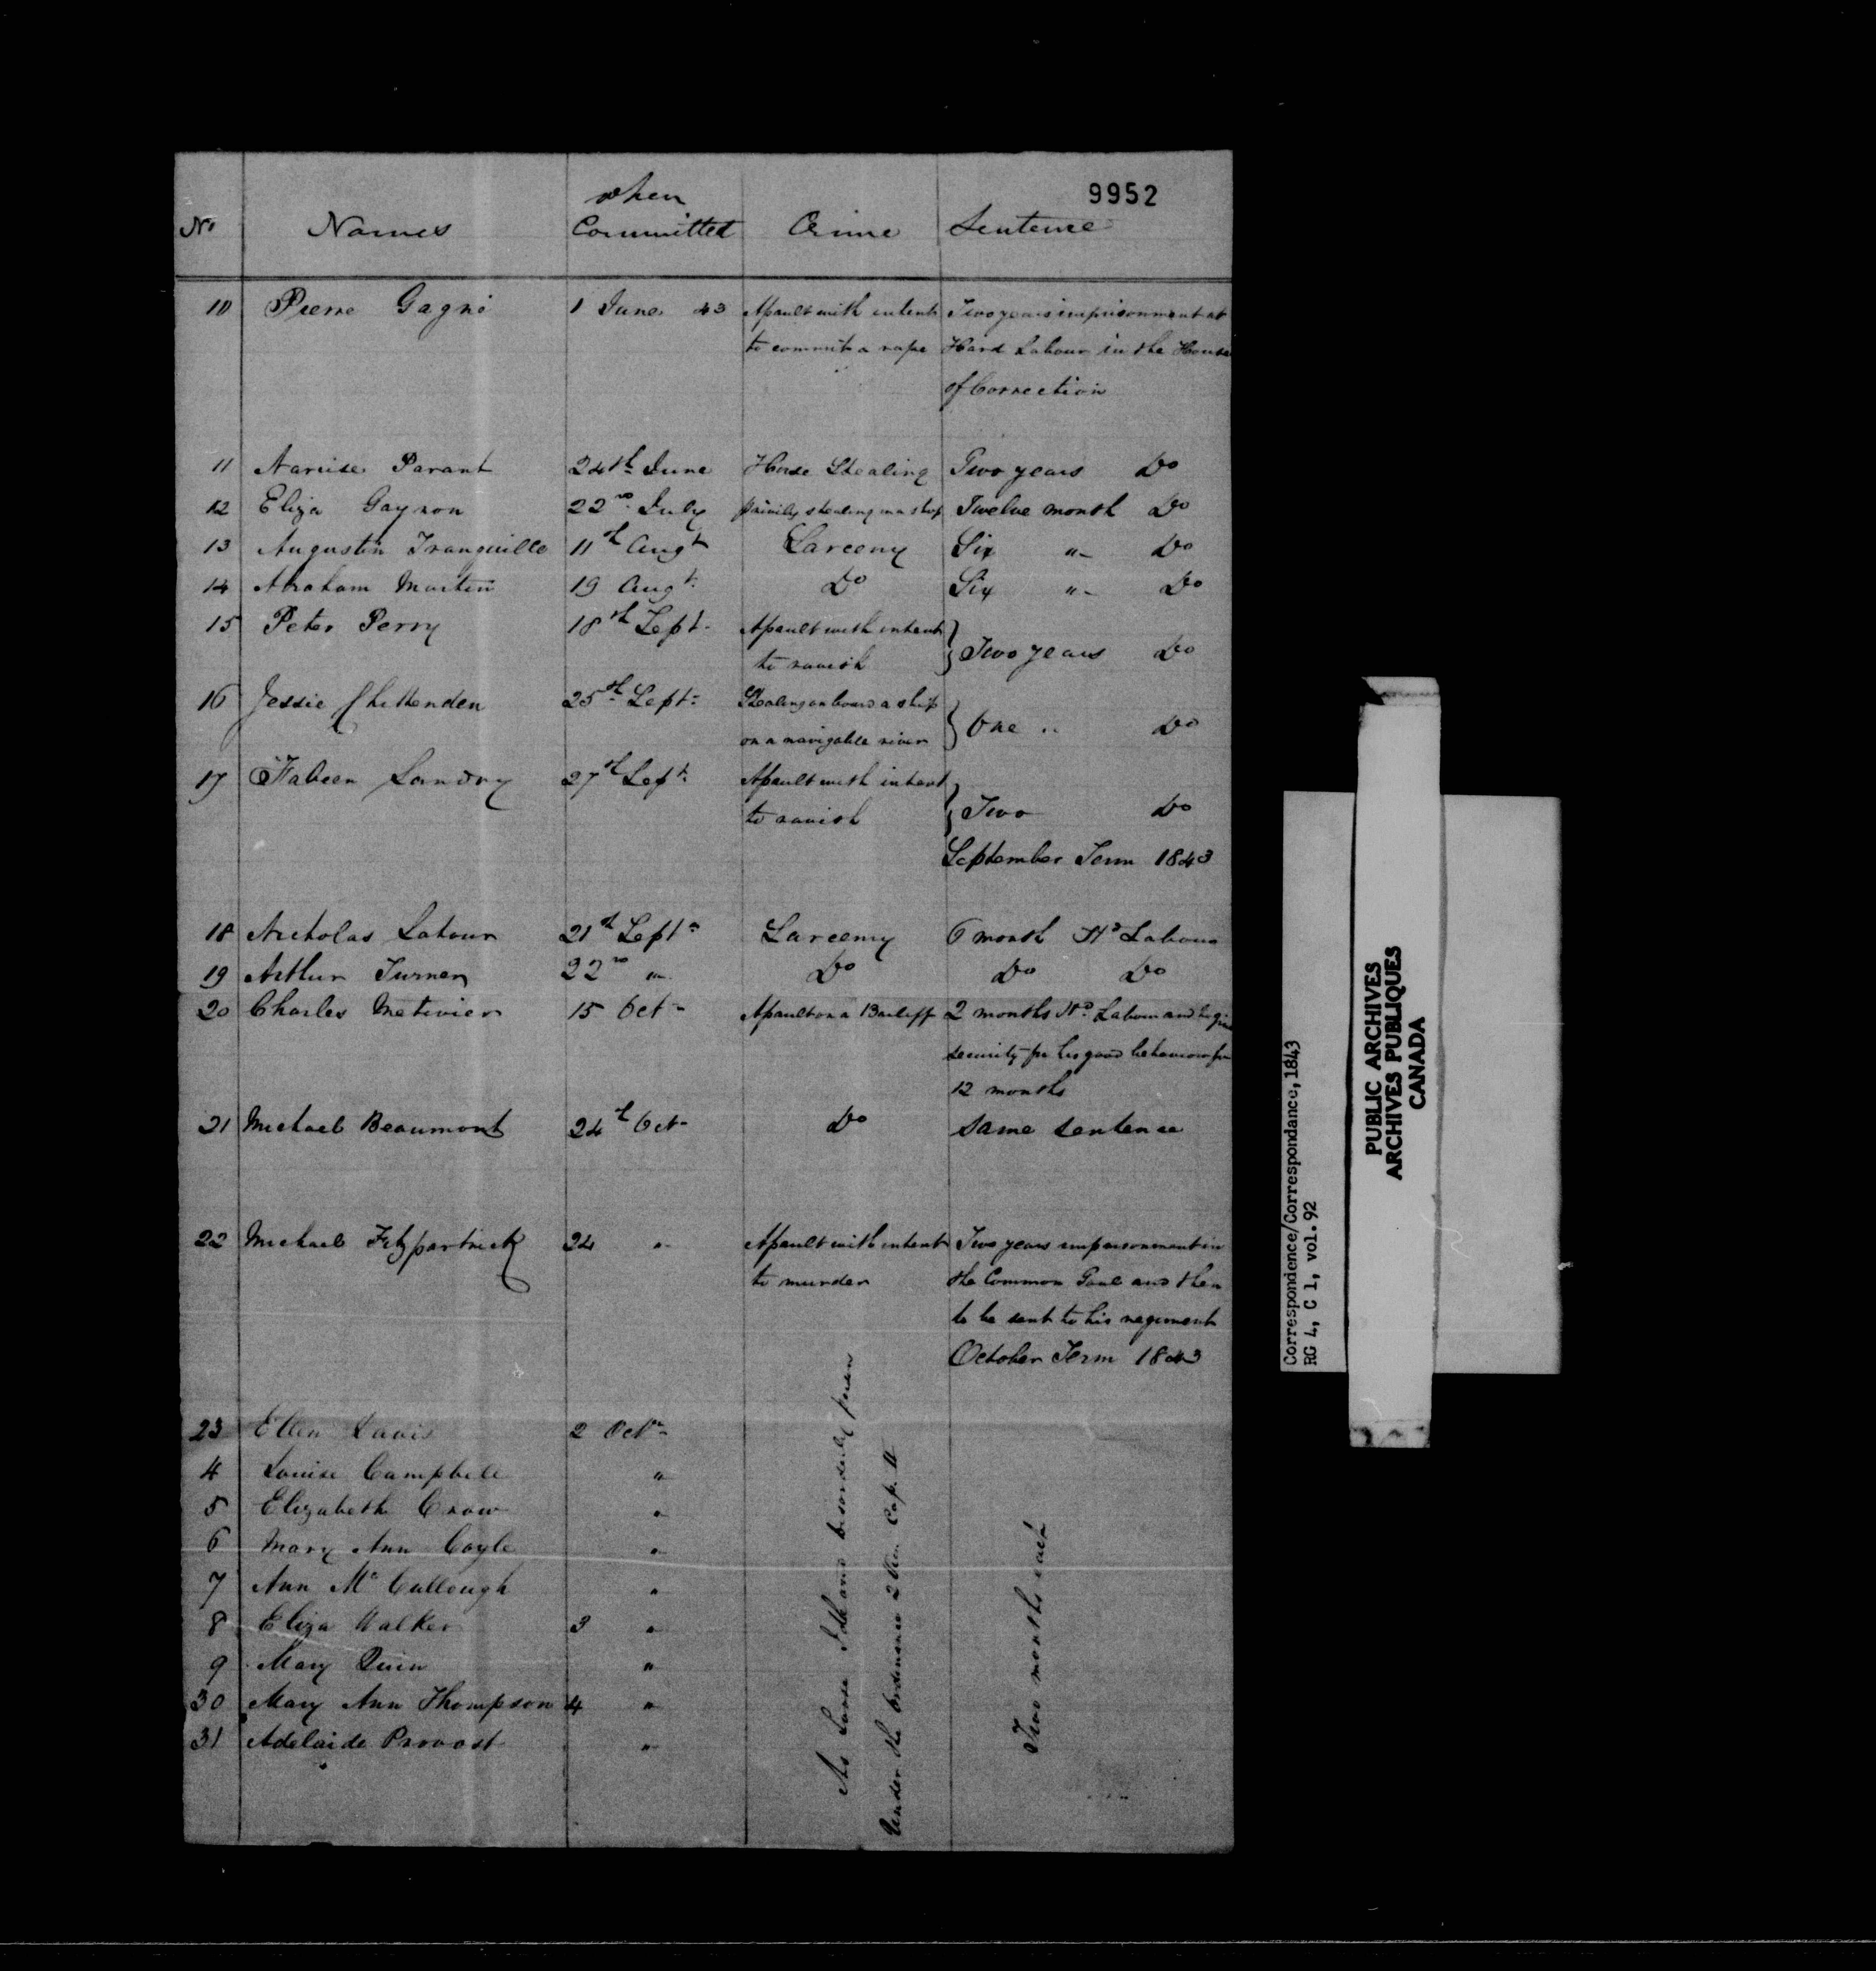 9952
No Names when Committed Crime Sentence
10 Pierre Gagné 1 June 43 Assault with intent Two years imprisonment at
to commit a rape Hard Labour in the House
of Correction
11 Narcise Parant 24th June Horse Stealing Two years Do
12 Eliza Gaynon 22nd July privily stealing in a shop Twelve month Do
13 Augustin Tranquille 11th Augt Larceny Six " Do
14 Abraham Martin 19 Augt Do Six " Do
15 Peter Perry 18th Sept Assault with intent
to ravish } Two years Do
16 Jessie Chittenden 25th Sept Stealing on board a ship
on a navigable river } One " Do
17 Fabien Landry 27th Sept Assault with intent
to ravish } Two Do
September Term 1843
18 Nicholas Latour 21st Sept Larceny 6 month Hd Labour
19 Arthur Turner 22nd " Do Do Do
20 Charles Metivier 15 Oct Assault on a Bailiff 2 months Hd Labour and to give
security for his good behaviour for
12 months
21 Michael Beaumont 24th Oct Do Same Sentence
22 Michael Fitzpartrick 24 " Assault with intent Two years imprisonment in
to murder the Common Gaol and then
to be sent to his regiment
October Term 1843
23 Ellen Davis 2 Oct
4 Louise Campbell "
5 Elizabeth Craw "
6 Mary Ann Coyle "
7 Ann McCullough "
8 Eliza Walker 3 "
9 Mary Quin "
30 Mary Ann Thompson 4 "
31 Adelaide Provost "
As Loose Idle and disorderly person
Under the Ordinance 2 Vic. Cap. II
Two months each
Correspondence/Correspondance, 1843
RG 4, C 1, vol. 92
PUBLIC ARCHIVES
ARCHIVES PUBLIQUES
CANADA